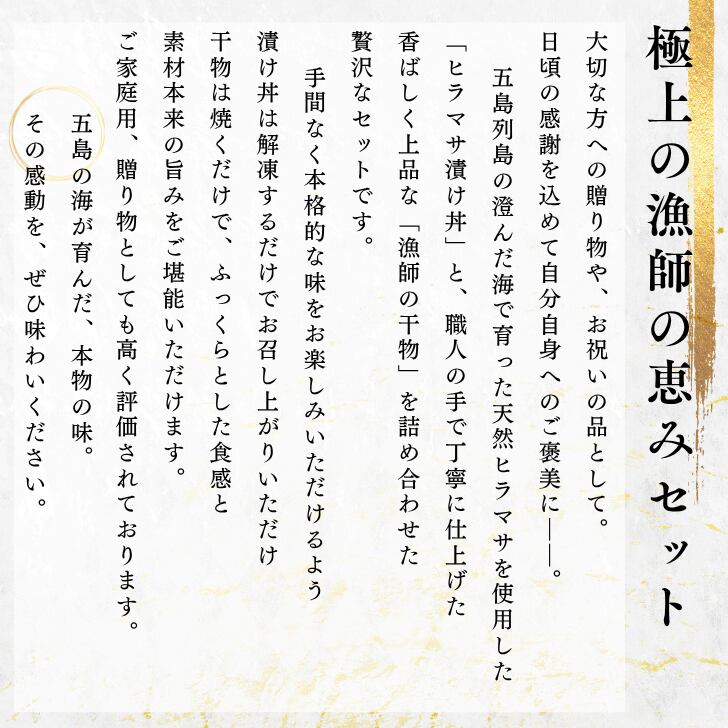 極上の漁師の恵みセット
大切な方への贈り物や、お祝いの品として。
日頃の感謝を込めて自分自身へのご褒美に――。
五島列島の澄んだ海で育った天然ヒラマサを使用した
「ヒラマサ漬け丼」と、職人の手で丁寧に仕上げた
香ばしく上品な「漁師の干物」を詰め合わせた
贅沢なセットです。
手間なく本格的な味をお楽しみいただけるよう
漬け丼は解凍するだけでお召し上がりいただけ
干物は焼くだけで、ふっくらとした食感と
素材本来の旨みをご堪能いただけます。
ご家庭用、贈り物としても高く評価されております。
五島の海が育んだ、本物の味。
その感動を、ぜひ味わいください。